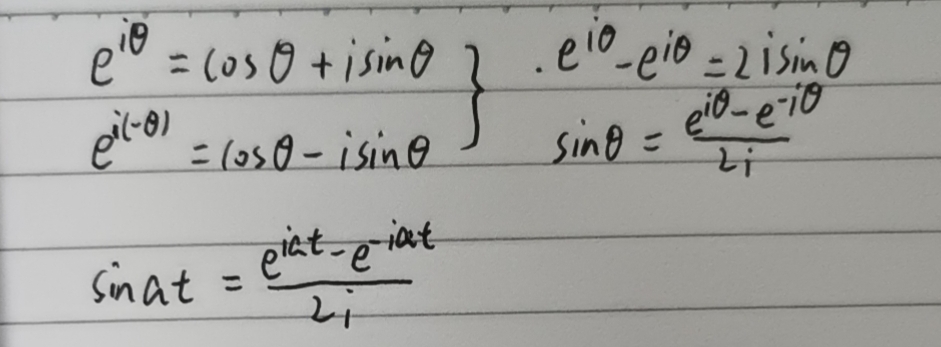 e^{iθ} = cosθ + i sinθ } . e^{iθ} - e^{iθ} = 2i sinθ
e^{i(-θ)} = cosθ - i sinθ sinθ = \frac{e^{iθ} - e^{-iθ}}{2i}
sin at = \frac{e^{iat} - e^{-iat}}{2i}